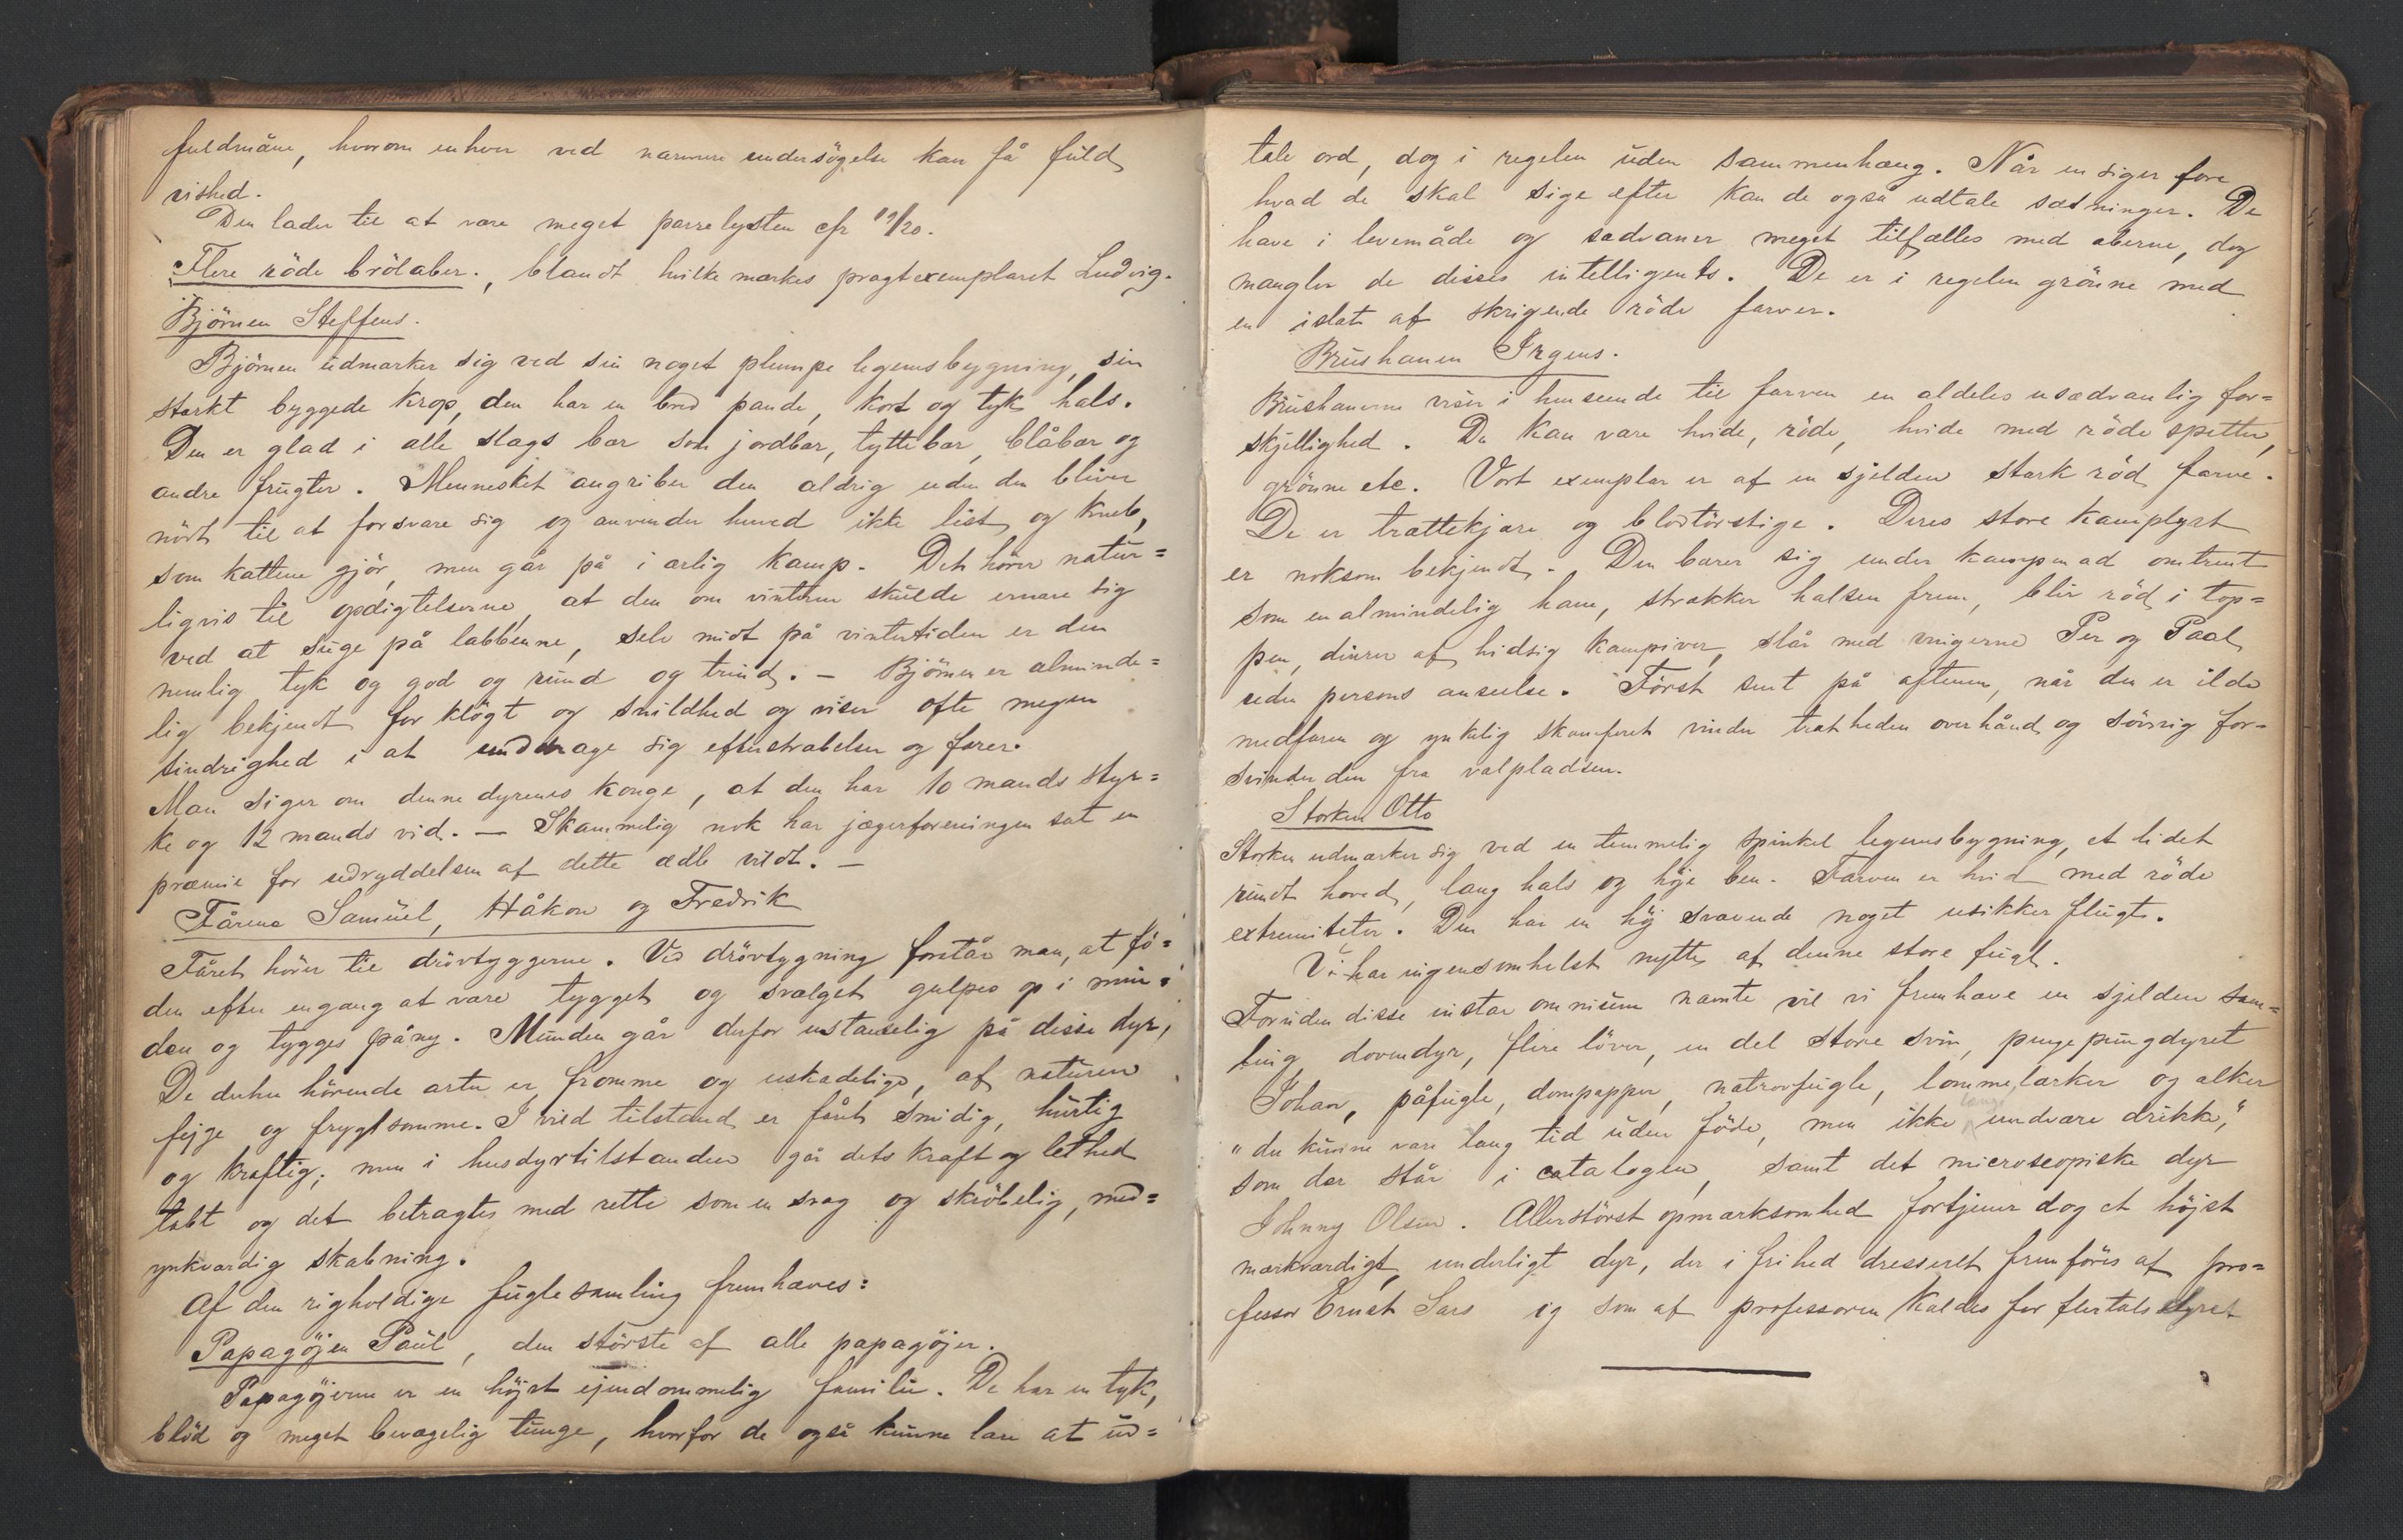 fuldmåne, hvorom enhver ved nærmere undersögelse kan få fuld
vished.
Den lader til at være meget parrelysten cfr 19/20.
Flere röde brölaber., blandt hvilke mærkes pragtexemplaret Ludvig.
Björnen Steffens.
Björnen udmærker sig ved sin noget plumpe legemsbygning, sin
stærkt byggede krop, den har en bred pande, kort og tyk hals.
Den er glad i alle slags bær som jordbær, tyttebær, blåbær og
andre frugter. Mennesket angriber den aldrig uden den bliver
nödt til at forsvare sig og anvender herved ikke list og kneb,
som kattene gjör, men går på i ærlig kamp. Det hörer natur=
ligvis til opdigtelserne, at den om vinteren skulde ernære sig
ved at suge på labberne, selv midt på vintertiden er den
nemlig tyk og god og rund og trind. — Björnen er alminde=
lig bekjendt for klögt og snildhed og viser ofte megen
sindrighed i at unddrage sig efterstræbelser og farer.
Man siger om denne dyrenes konge, at den har 10 mands styr=
ke og 12 mands vid. — Skammelig nok har jægerforeningen sat en
præmie for udryddelsen af dette ædle vildt. —
Fårene Samuel, Håkon og Fredrik
Fåret hörer til drövtyggerne. Ved drövtygning forstår man, at fö=
den efter engang at være tygget og svælget gulpes op i mun=
den og tygges påny. Munden går derfor ustanselig på disse dyr,
De derhen hörende arter er fromme og uskadelige, af naturen
fejge og frygtsomme. I vild tilstand er fåret smidig, hurtig
og kraftig; men i husdyrtilstanden går dets kraft og lethed
tabt og det betragtes med rette som en svag og skröbelig, med=
ynkværdig skabning.
Af den righoldige fuglesamling fremhæves:
Papagöjen Paul, den störste af alle papagöjer.
Papagöjerne er en höjst ejendommelig familie. De har en tyk,
blöd og meget bevægelig tunge, hvorfor de også kunne lære at ud=
tale ord, dog i regelen uden sammenhæng. Når en siger fore
hvad de skal sige efter kan de også udtale sætninger. De
have i levemåde og sædvaner meget tilfælles med aberne, dog
mangler de disses intelligents. De er i regelen grönne med
en islæt af skrigende röde farver.
Brushanen Irgens.
Brushanerne viser i henseende til farven en aldeles usædvanlig for=
skjellighed. De kan være hvide, röde, hvide med röde spetter,
grönne etc. Vort exemplar er af en sjelden stærk röd farve.
De er trættekjære og blodtörstige. Deres store kamplyst
er noksom bekjendt. Den bærer sig under kampen ad omtrent
som en almindelig hane, strækker halsen frem, blir röd i top=
pen, dirrer af hidsig kampiver, slår med vingerne Per og Paal
uden persons anseelse. Först sent på aftenen, når den er ilde
medfaren og ynkelig skamferet vinder trætheden overhånd og sövnig for=
svinder den fra valpladsen.
Storken Otto
Storken udmærker sig ved en temmelig spinkel legemsbygning, et lidet
rundt hoved, lang hals og höje ben. Farven er hvid med röde
extremiteter. Den har en höj svævende noget usikker flugt.
Vi har ingensomhelst nytte af denne store fugl.
Foruden disse instar omnium nævnte vil vi fremhæve en sjelden sam=
ling dovendyr, flere löver, en del store svin, pungdyret
Johan, påfugle, dompapper, natravfugle, lommelærker og alker
"der kunne være lang tid uden föde, men ikke længe undvære drikke,"
som der står i catalogen, samt det microscopiske dyr
Johnny Olsen. Allerstörst opmærksomhed fortjener dog et höjst
mærkværdigt, underligt dyr, der i frihed dresseret fremföres af pro=
fessor Ernst Sars og som af professoren kaldes for flertalsdyret